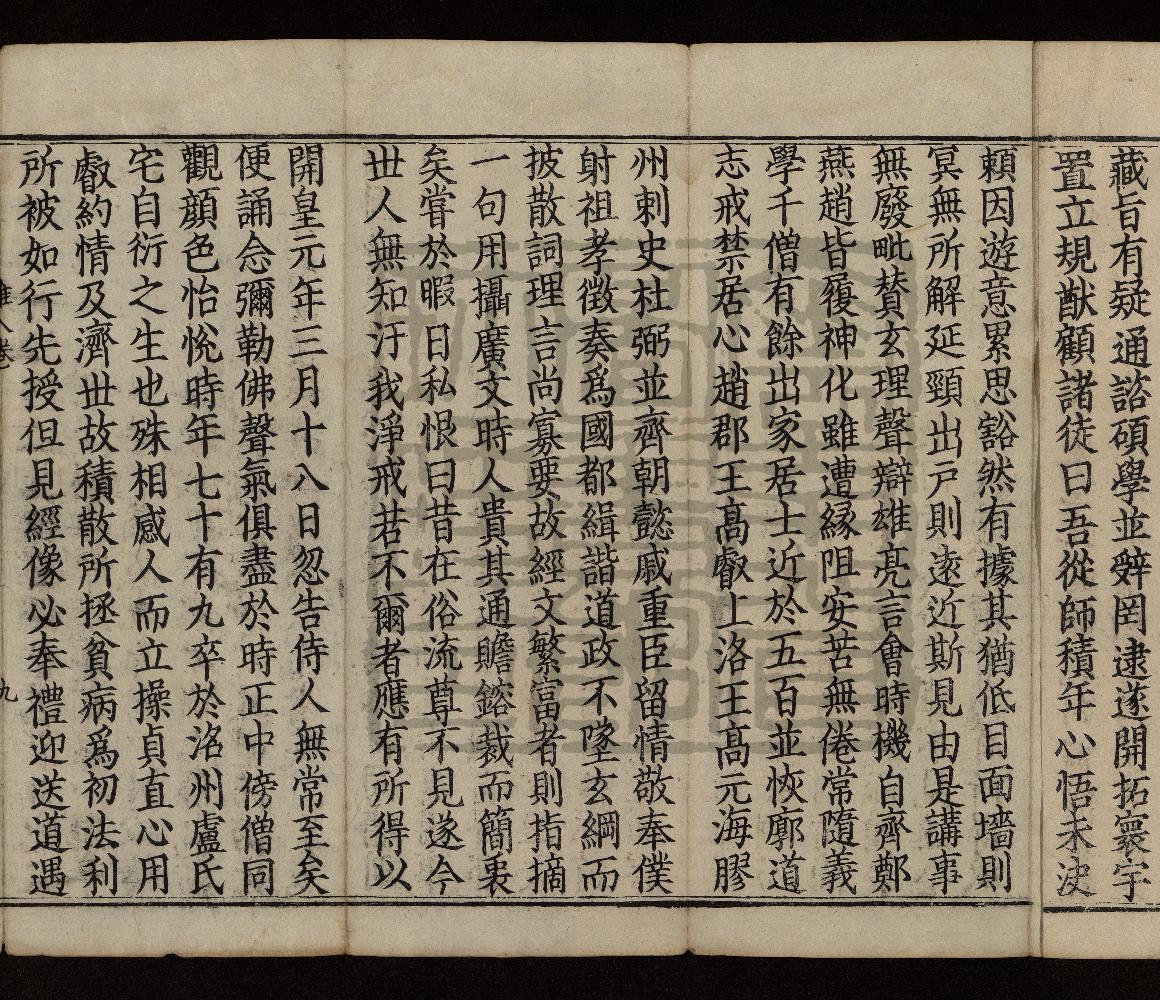 藏旨有疑通諮碩學並辤罔逮遂開拓寰宇
置立規猷顧諸徒曰吾從師積年心悟未決
賴因遊意累思豁然有據其猶低目面墻則
冥無所解延頸出戶則遠近斯見由是講事
無廢毗賛玄理聲辯雄亮言會時機自齊鄭
燕趙皆履神化雖遭緣阻安苦無倦常隨義
學千僧有餘出家居士近於五百並恢廓道
志戒禁居心趙郡王高叡上洛王高元海膠
州刺史杜弼並齊朝懿戚重臣留情敬奉僕
射祖孝徵奏爲國都緝諧道政不墜玄綱而
披散詞理言尚寡要故經文繁富者則指摘
一句用攝廣文時人貴其通贍鎔裁而簡衷
矣嘗於暇日私恨曰昔在俗流尊不見遂今
世人無知汙我淨戒若不爾者應有所得以
開皇元年三月十八日忽告侍人無常至矣
便誦念彌勒佛聲氣俱盡於時正中傍僧同
觀顔色怡悅時年七十有九卒於洛州盧氏
宅自衍之生也殊相感人而立操貞直心用
叡約情及濟世故積散所拯貧病爲初法利
所被如行先授但見經像必奉禮迎送道遇
九